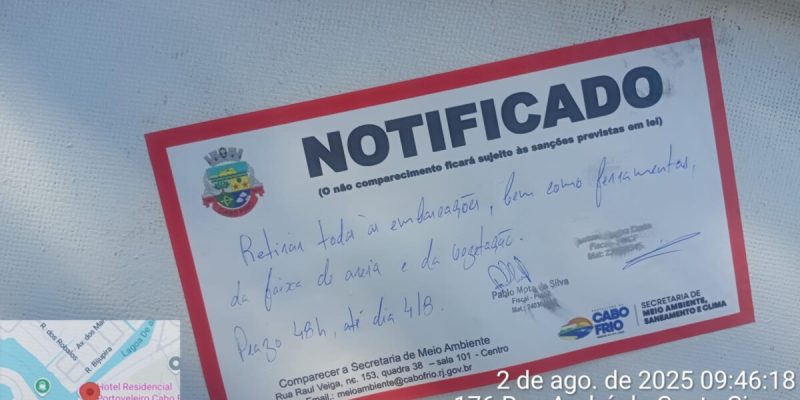 NOTIFICADO
(O não comparecimento ficará sujeito às sanções previstas em lei)
Retirar toda às embarcações, bem como ferramentas,
da faixa de areia e da vegetação.
Prazo 48h, até dia 4/8.
Pablo Mota da Silva
Fiscal
Mat.:
CABO FRIO
SECRETARIA DE
MEIO AMBIENTE,
SANEAMENTO E CLIMA
Comparecer a Secretaria de Meio Ambiente
Rua Raul Veiga, nº. 153, quadra 38 – sala 101 - Centro
Email.: meioambiente@cabofrio.rj.gov.br
R. dos Robalos
Av. dos
R. Bijupira
Lagoa De
Hotel Residencial
Portoveleiro Cabo
2 de ago. de 2025 09:46:18